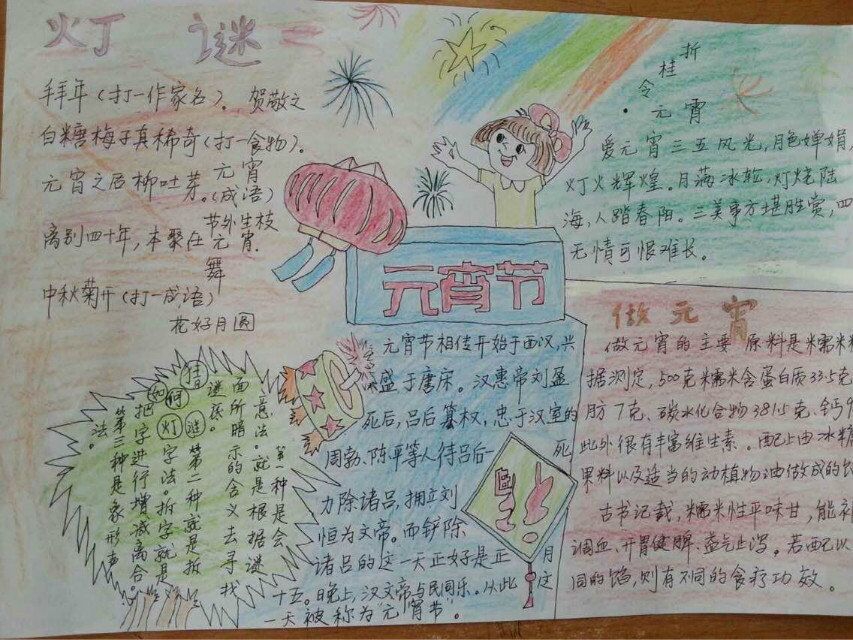 灯 谜
拜年（打一作家名）。贺敬之
白糖梅子真稀奇（打一食物）。
元宵
元宵之后柳吐芽。（成语）
节外生枝
离别四十年，本聚在元宵。
舞
中秋菊开（打一成语）
花好月圆
折
桂
令
·元宵
爱元宵三五风光，月色婵娟，
灯火辉煌。月满冰轮，灯烧陆
海，人踏春阳。三美事方堪胜赏，四
无情可恨难长。
元宵节
元宵节相传开始于西汉，兴
盛于唐宋。汉惠帝刘盈
死后，吕后篡权，忠于汉室的
周勃、陈平等人待吕后一死
力除诸吕，拥立刘
恒为文帝。而铲除
诸吕的这一天正好是正月
十五。晚上，汉文帝与民同乐。从此这
一天被称为元宵节。
做元宵
做元宵的主要原料是糯米粉
据测定，500克糯米含蛋白质33.5克
肪7克、碳水化合物381.5克、钙9
此外很有丰富维生素。配上由冰糖
果料以及适当的动植物油做成的
古书记载，糯米性平味甘，能补
调血、开胃健脾、益气止泻。若配以
同的馅，则有不同的食疗功效。
如何猜灯谜
第一种是会
意法，就是根据谜
面所暗示的含义去寻找
谜底。
第二种就是拆
字法。拆字就是
把字进行增减离合。
第三种是象形声
法。